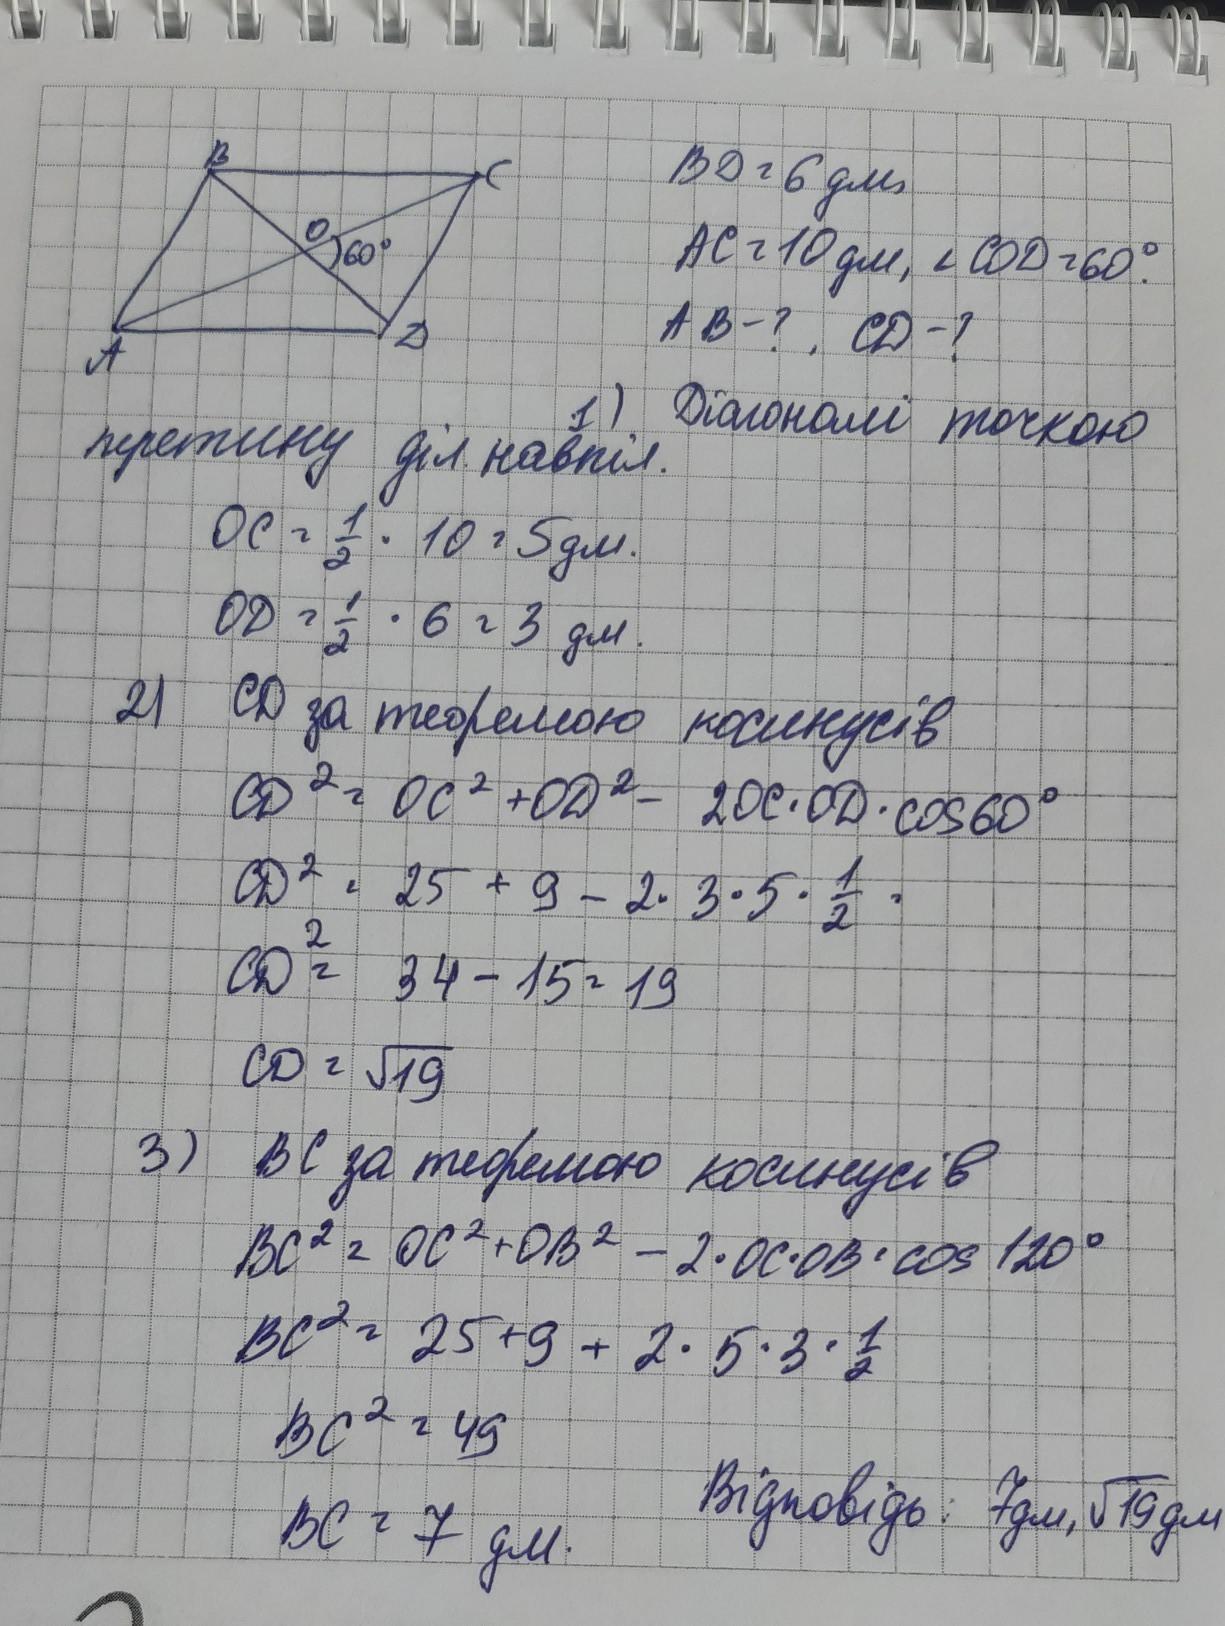 B
C
O
60°
A
D
BD = 6 дм,
AC = 10 дм, ∠ COD = 60°.
AB - ? , CD - ?
1) Діагоналі точкою
перетину діл. навпіл.
OC = 1/2 · 10 = 5 дм.
OD = 1/2 · 6 = 3 дм.
2) CD за теоремою косинусів
CD² = OC² + OD² - 2OC · OD · cos 60°
CD² = 25 + 9 - 2 · 3 · 5 · 1/2 =
CD² = 34 - 15 = 19
CD = √19
3) BC за теоремою косинусів
BC² = OC² + OB² - 2 · OC · OB · cos 120°
BC² = 25 + 9 + 2 · 5 · 3 · 1/2
BC² = 49
BC = 7 дм.
Відповідь: 7дм, √19 дм